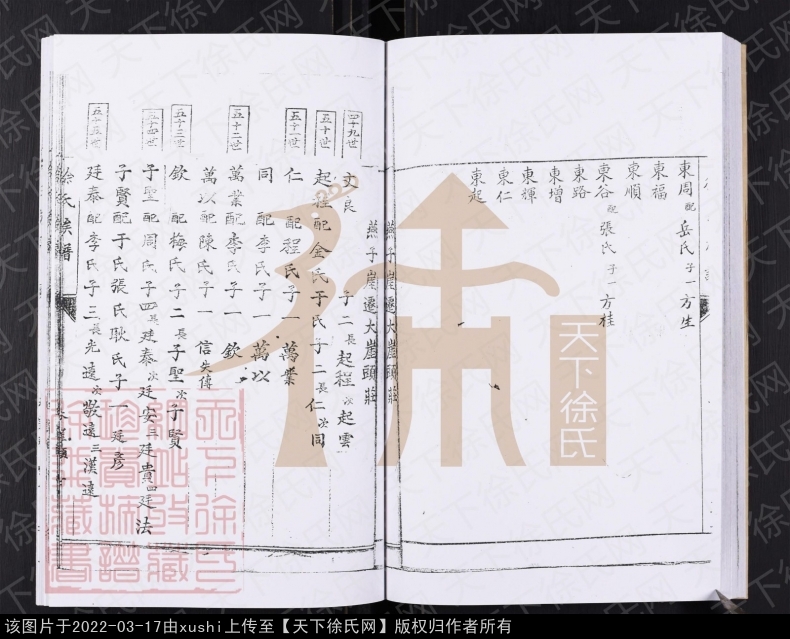 東周配岳氏子一方生
東福
東順
東谷配張氏子一方桂
東路
東增
東禪
東仁
東起
燕子崖遷大崖頭莊
燕子崖遷大崖頭莊
四十九世
文良 子二長起程次起雲
五十世
起程配金氏于氏子二長仁次同
五十一世
仁配程氏子一萬業
同配李氏子一萬以
五十二世
萬業配李氏子一欽
萬以配陳氏子一信失傳
五十三世
欽配梅氏子二長子聖次子賢
五十四世
子聖配周氏子四長廷泰次廷安三廷貴四廷法
子賢配于氏張氏耿氏子一廷彥
五十五世
廷泰配李氏子三長光遠次敬遠三漢遠
徐氏族譜
天下徐氏
天下徐氏网
该图片于2022-03-17由xushi上传至【天下徐氏网】版权归作者所有